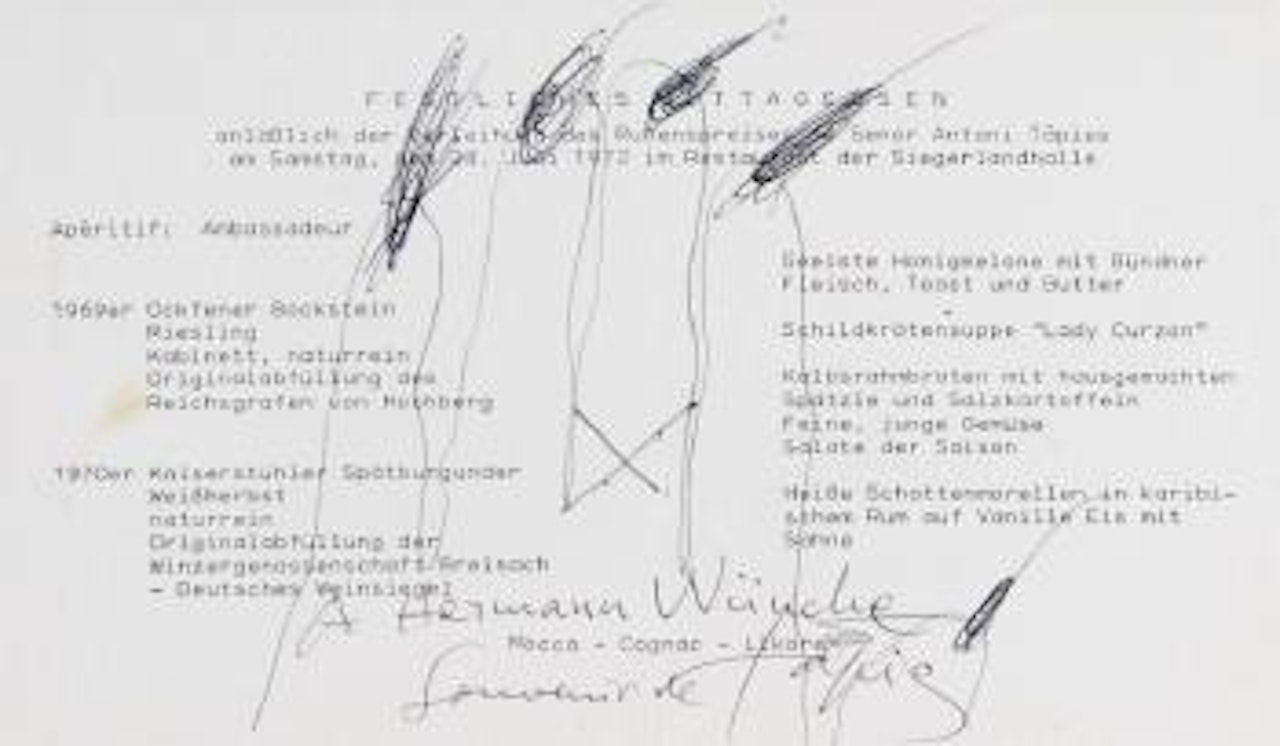 FESTLICHES MITTAGESSEN
anläßlich der Verleihung des Rubenspreises Senor Antoni Tàpies
am Samstag, 1972 im Restaurant der Siegerlandhalle
Apèritif: Ambassadeur
1969er Ockfener Bockstein
Riesling
Kabinett, naturrein
Originalabfüllung des
Reichsgrafen von
1970er Kaiserstuhler Spätburgunder
Weißherbst
naturrein
Originalabfüllung der
Winzergenossenschaft Breisach
- Deutsches Weinsiegel
Geeiste Honigmelone mit Bündner
Fleisch, Toast und Butter
Schildkrötensuppe "Lady Curzon"
Kalbsrahmbraten mit hausgemachten
Spätzle und Salzkartoffeln
Feine, junge Gemüse
Salate der Saison
Heiße Schattenmorellen in karibi-
schem Rum auf Vanille Eis mit
Sahne
A Hermann
Mocca - Cognac - Liköre
Souvenir de Tàpies